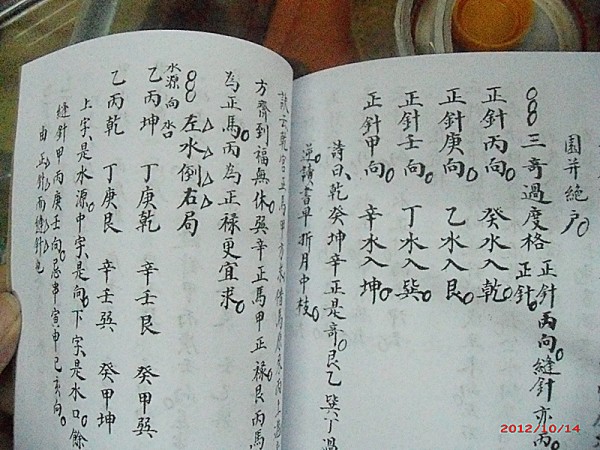 園并絶户
三奇過度格 正針丙向縫針亦丙
正針
正針丙向 癸水入乾
正針庚向 乙水入艮
正針壬向 丁水入巽
正針甲向 辛水入坤
詩曰乾癸坤辛正是奇艮乙巽丁過
讀書早折月中枝
方齊到福無休巽辛正馬甲正祿艮丙馬
為正馬丙為正祿更宜求
左水倒右局
水源 向 水口
乙丙坤 丁庚乾 辛壬艮 癸甲巽
乙丙乾 丁庚艮 辛壬巽 癸甲坤
上字是水源中字是向下字是水口餘
縫針甲丙庚壬向忌串寅申己亥向
由正針而縫針也
2012/10/14